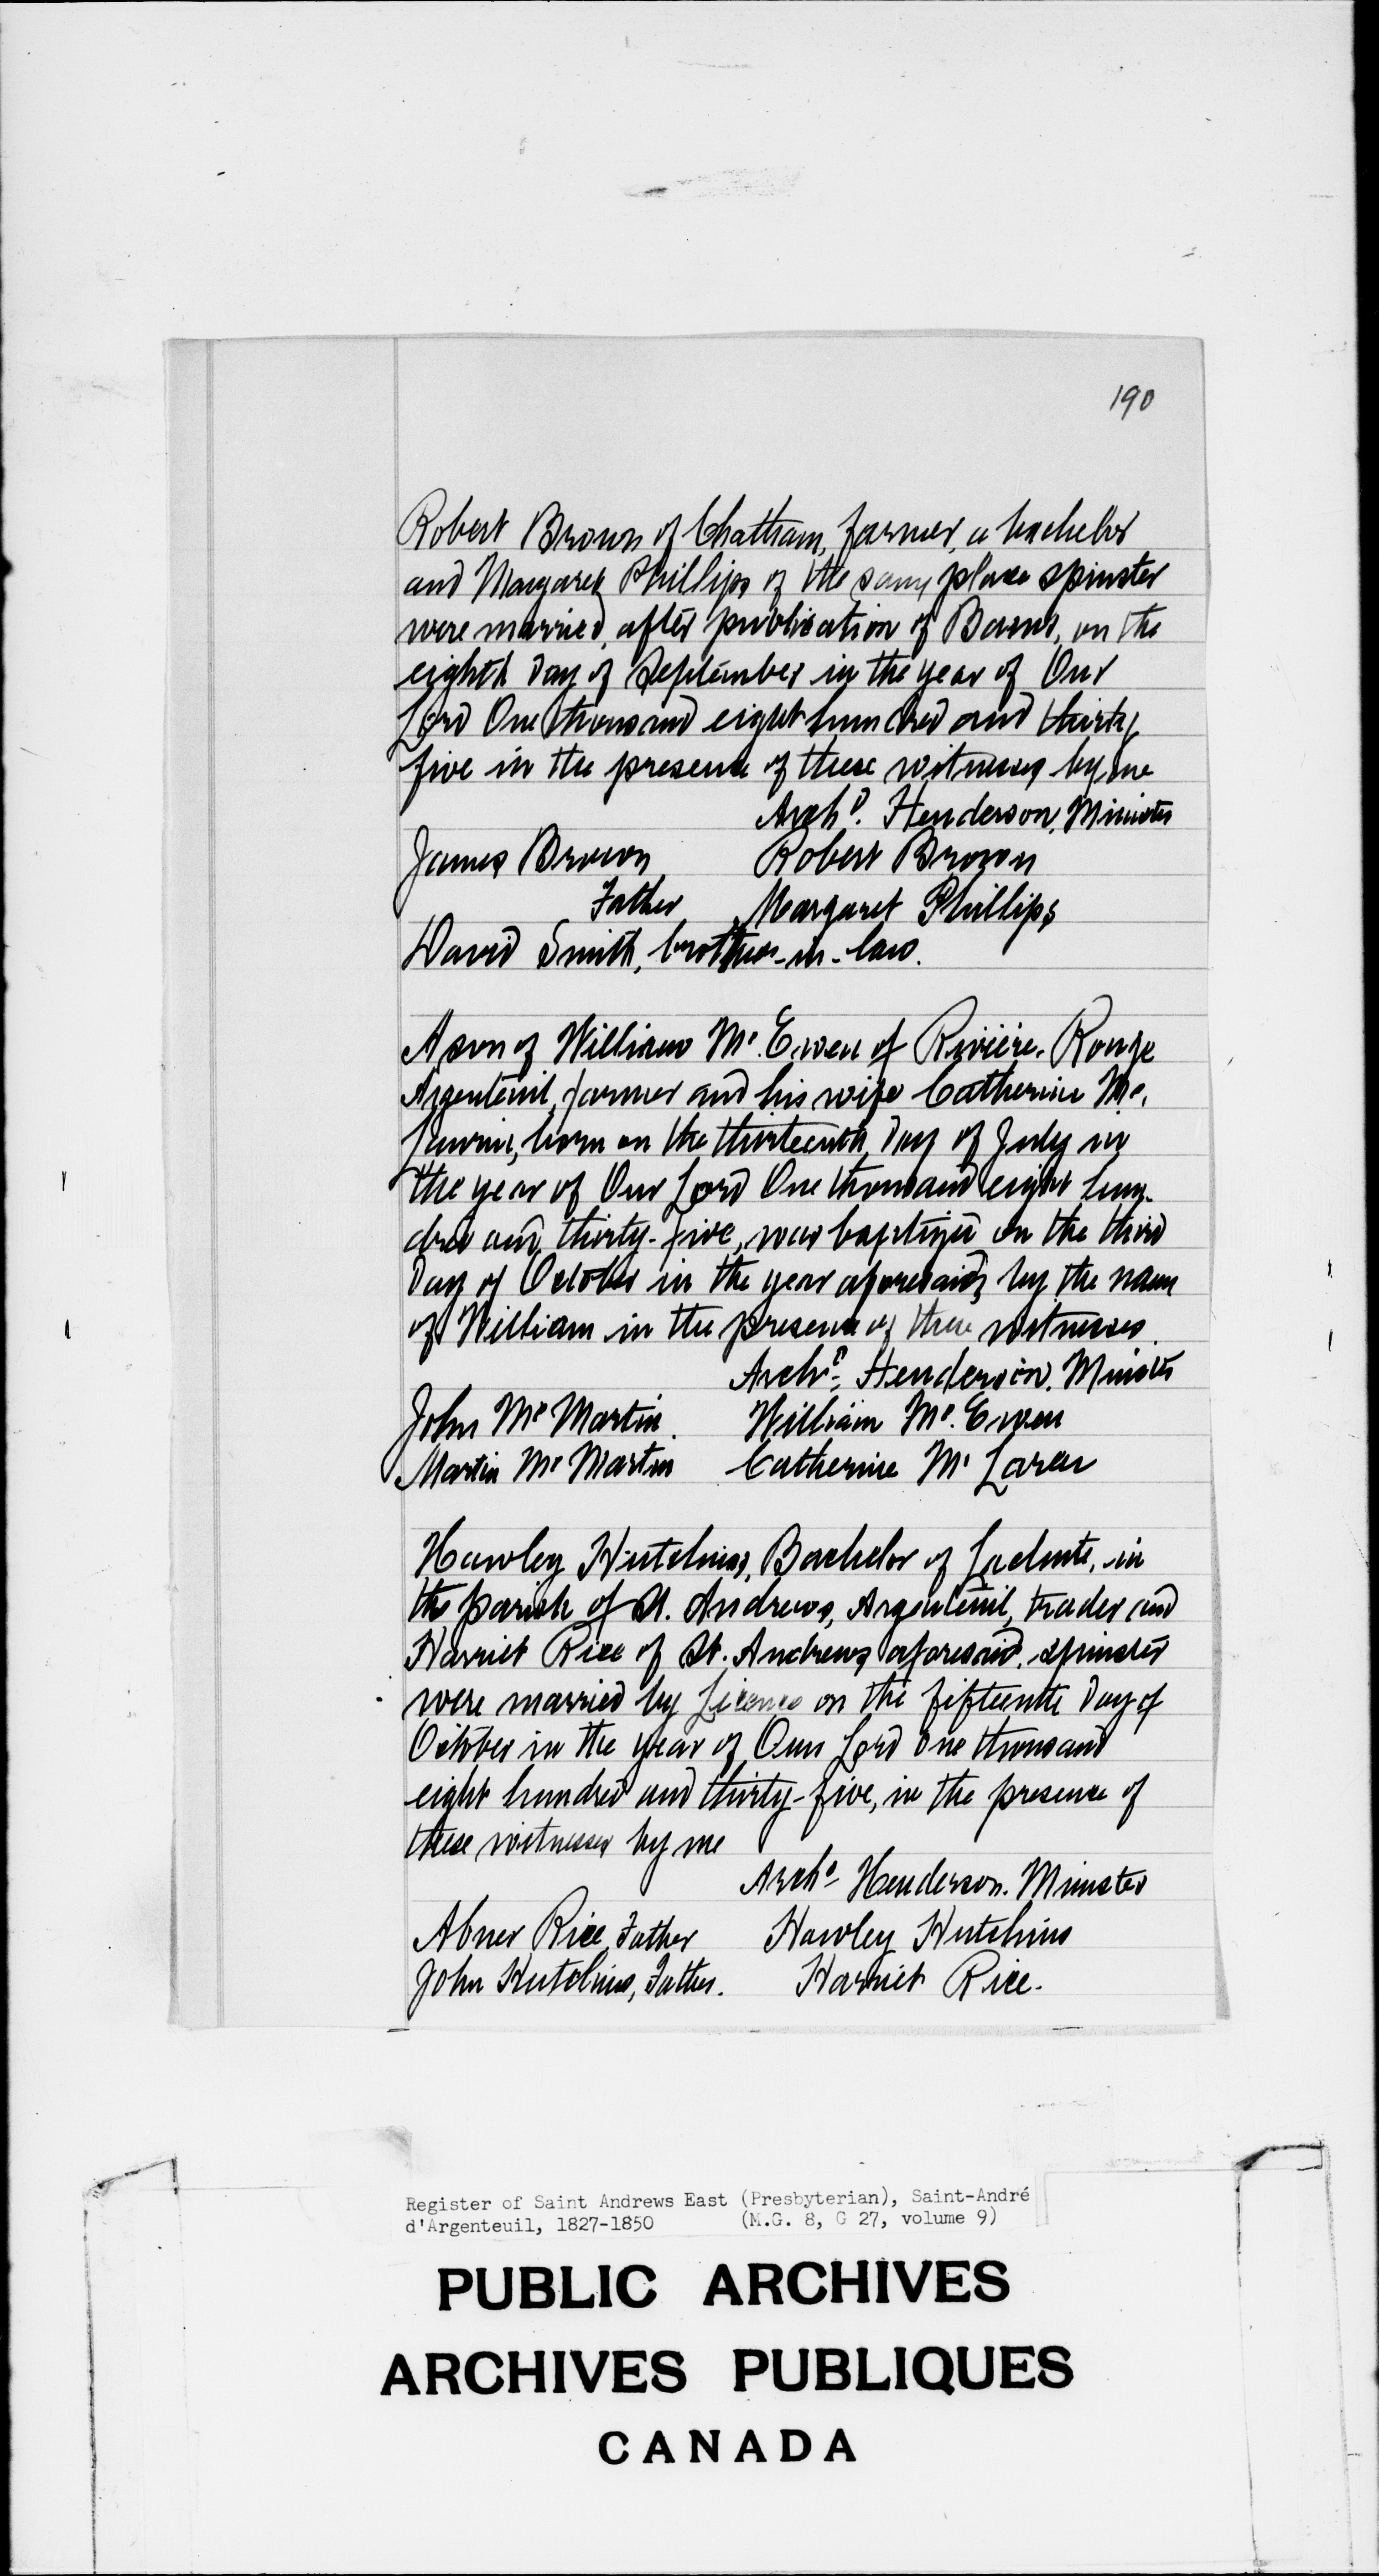 190
Robert Brown of Chatham, farmer, a bachelor
and Margaret Phillips of the same place spinster
were married, after publication of Banns, on the
eighth day of September in the year of Our
Lord One thousand eight hundred and thirty
five in the presence of these witnesses by me
Archd. Henderson, Minister
James Brown Robert Brown
Father Margaret Phillips
David Smith, brother-in-law.
A son of William Mc. Ewen of Rivière Rouge
Argenteuil, farmer and his wife Catherine Mc.
born on the thirteenth day of July in
the year of Our Lord One thousand eight hun-
dred and thirty-five, was baptized on the third
day of October in the year aforesaid, by the name
of William in the presence of these witnesses.
Archd. Henderson, Minister
John Mc Martin. William Mc. Ewen
Martin Mc Martin Catherine Mc Laren
Hawley Hutchins, Bachelor of Lachute, in
the parish of St. Andrews, Argenteuil, trader and
Harriet Rice of St. Andrews aforesaid, spinster
were married by License on the fifteenth day of
October in the year of Our Lord one thousand
eight hundred and thirty-five, in the presence of
these witnesses by me
Archd. Henderson. Minister
Abner Rice, Father Hawley Hutchins
John Hutchins, Father. Harriet Rice.
Register of Saint Andrews East (Presbyterian), Saint-André
d'Argenteuil, 1827-1850 (M.G. 8, G 27, volume 9)
PUBLIC ARCHIVES
ARCHIVES PUBLIQUES
CANADA